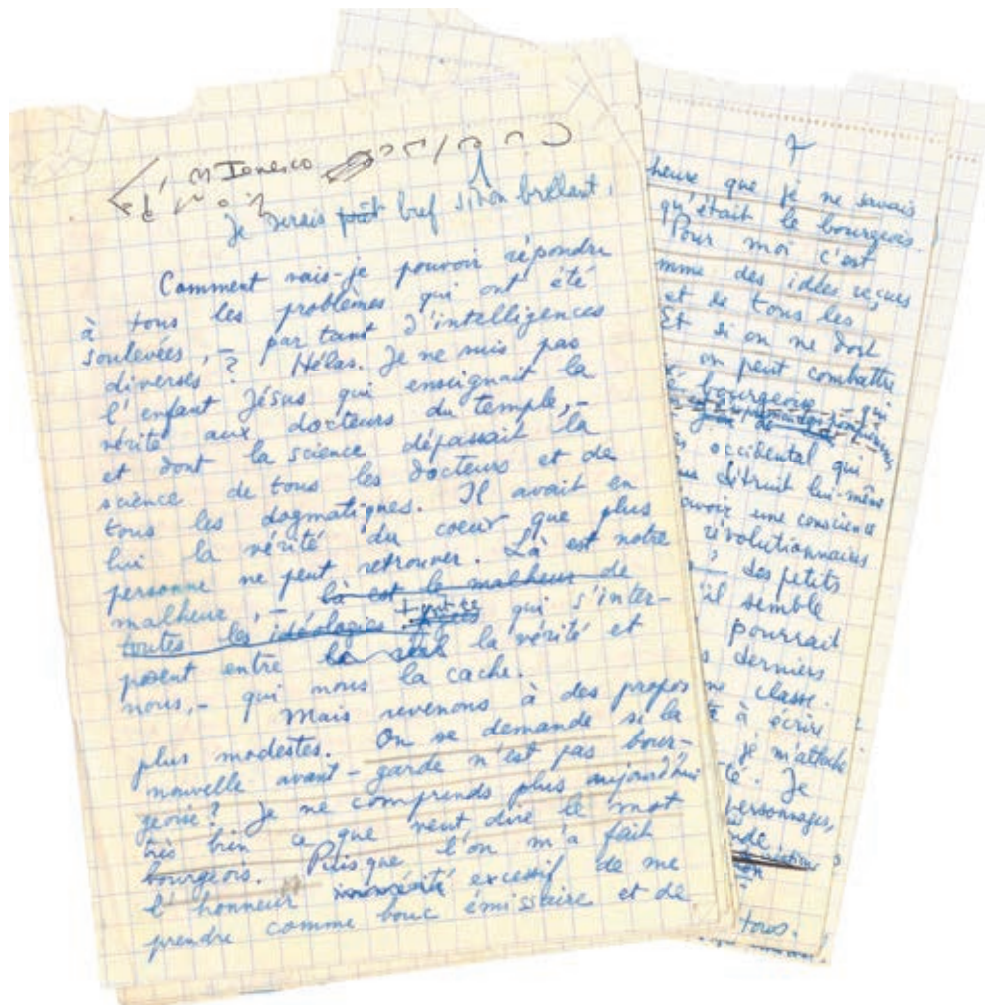 M Ionesco
Je serais bref sinon brillant.
Comment vais-je pouvoir répondre
à tous les problèmes qui ont été
soulevées, – par tant d'intelligences
diverses ? Hélas. Je ne suis pas
l'enfant Jésus qui enseignait la
vérité aux docteurs du temple, –
et dont la science dépassait la
science de tous les docteurs et de
tous les dogmatiques. Il avait en
lui la vérité du coeur que plus
personne ne peut retrouver. Là est notre
malheur, – là est le malheur de
toutes les idéologies qui s'inter-
posent entre la vérité et
nous, – qui nous la cache.
Mais revenons à des propos
plus modestes. On se demande si la
nouvelle avant-garde n'est pas bour-
geoise ? Je ne comprends plus aujourd'hui
très bien ce que veut dire le mot
bourgeois. Puisque l'on m'a fait
l'honneur excessif de me
prendre comme bouc émissaire et de
7
heure que je ne savais
qu'était le bourgeois.
Pour moi c'est
mme des idées reçues
et si tous les
Et si on ne doit
on peut combattre
é bourgeoise, – qui
occidental qui
détruit lui-même
avoir une conscience
révolutionnaires
des petits
'il semble
pourrait
s derniers
ne classe.
te à écrire
je m'attache
té. Je
personnages,
nde
tous.